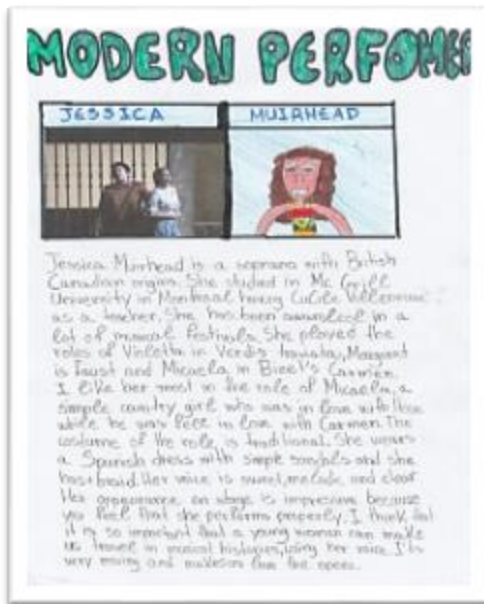 MODERN PERFOMER
JESSICA MUIRHEAD
Jessica Muirhead is a soprano with British
Canadian origin. She studied in Mc Grill
University in Montreal having Cecile Villeneuve
as a teacher. She has been in a
lot of musical festivals. She played the
roles of Violetta in Verdi's Margaret
is Faust and Micaela in Bizet's Carmen.
I like her most in the role of Micaela, a
simple country girl who was in love with
while he was in love with Carmen. The
costume of the role is traditional. She wears
a Spanish dress with simple sandals and she
has braid. Her voice is sweet, and clear
Her appearance on stage is because
you feel that she performs properly. I think, that
it is so important that a young woman can make
us travel in musical histories, using her voice. It's
very and love the opera.